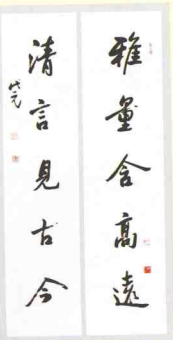 雅量含高遠
清言見古今